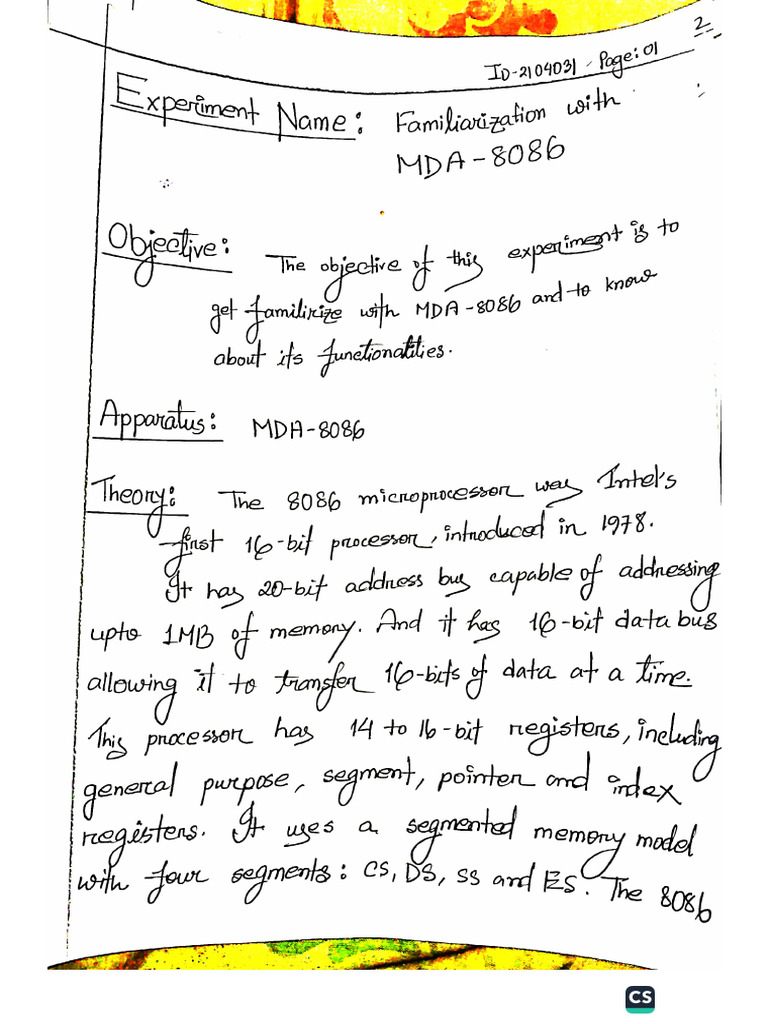 2
ID-2104031, Page: 01
Experiment Name: Familiarization with
MDA-8086
Objective: The objective of this experiment is to
get familirize with MDA-8086 and to know
about its functionalities.
Apparatus: MDA-8086
Theory: The 8086 microprocessor was Intel's
first 16-bit processor, introduced in 1978.
It has 20-bit address bus capable of addressing
upto 1MB of memory. And it has 16-bit data bus
allowing it to transfer 16-bits of data at a time.
This processor has 14 to 16-bit registers, including
general purpose, segment, pointer and index
registers. It uses a segmented memory model
with four segments: CS, DS, SS and ES. The 8086
CS